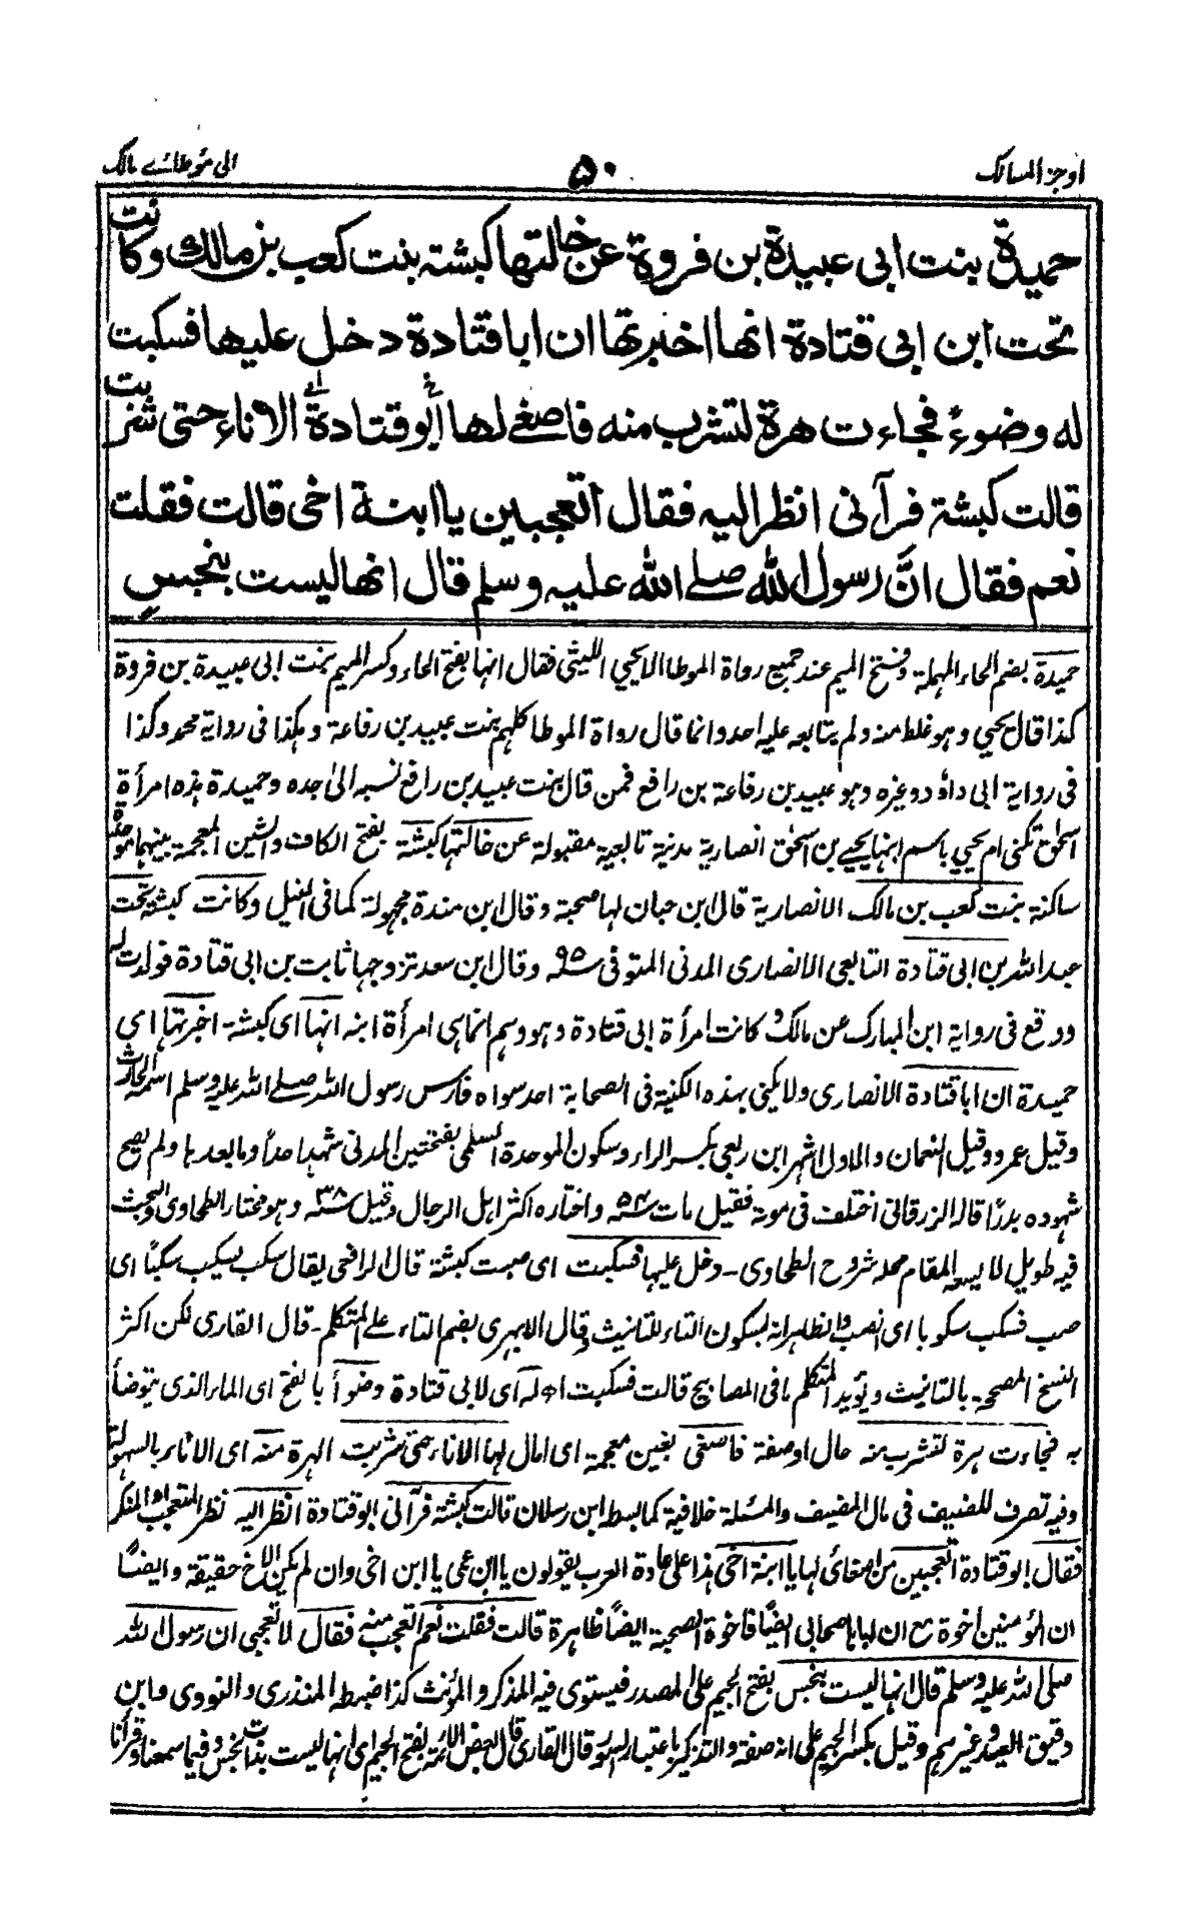 اوجز المسالك ۵۰ الى مؤطائے مالك
حميدة بنت ابى عبيدة بن فروة عن خالتها كبشة بنت كعب بن مالك وكانت
تحت ابن ابى قتادة انها اخبرتها ان ابا قتادة دخل عليها فسكبت
له وضوءً فجاءت هرة لتشرب منه فاصغى لها ابو قتادة الاناء حتى شربت
قالت كبشة فرآنى انظر اليه فقال اتعجبين يا ابنة اخى قالت فقلت
نعم فقال انَّ رسول الله صلے الله عليه وسلم قال انها ليست بنجسٍ
حميدة بضم الحاء المهملة وفتح الميم عند جميع رواة الموطا الا يحيى الليثى فقال انها بفتح الحاء وكسر الميم بنت ابى عبيدة بن فروة
كذا قال يحيي وهو غلط منه ولم يتابعه عليه احد وانما قال رواة الموطا كلهم بنت عبيد بن رفاعة وهكذا فى رواية محمد وكذا
فى رواية ابى داؤد وغيره وهو عبيد بن رفاعة بن رافع فمن قال بنت عبيد بن رافع نسبه الى جده وحميدة هذه امرأة
اسحٰق تكنى ام يحيي باسم ابنها يحيے بن اسحٰق انصارية مدنية تابعية مقبولة عن خالتها كبشة بفتح الكاف والشين المعجمة بينهما موحدة
ساكنة بنت كعب بن مالك الانصارية قال ابن حبان لها صحبة وقال ابن مندة مجهولة كما فى النيل وكانت كبشة تحت
عبد الله بن ابى قتادة التابعى الانصارى المدنى المتوفى ۹۵ھ وقال ابن سعد تزوجها ثابت بن ابى قتادة فولدت له
ووقع فى رواية ابن المبارك عن مالك كانت امرأة ابى قتادة وهو وهم انما هى امرأة ابنه انها اى كبشة۔ اخبرتها اى
حميدة ان ابا قتادة الانصارى ولا يكنى بهذه الكنية فى الصحابة احد سواه فارس رسول الله صلے الله عليه وسلم اسمه الحارث
وقيل عمرو وقيل النعمان والاول اشهر ابن ربعى بكسر الراء وسكون الموحدة السلمى بفتحتين المدنى شهد احدًا وما بعدها ولم يصح
شهوده بدرًا قاله الزرقانى اختلف فى موته فقيل مات ۵۴ھ واختاره اكثر اهل الرجال وقيل ۳۸ھ وهو مختار الطحاوى والبحث
فيه طويل لا يسعه المقام محله شروح الطحاوى۔ دخل عليها فسكبت اى صبت كبشة قال الرافعى يقال سكب يسكب سكبًا اى
صب فسكب سكوبا اى انصب والظاهر انه بسكون التاء للتانيث وقال الابهرى بضم التاء على المتكلم۔ قال القارى لكن اكثر
النسخ المصححة بالتانيث ويؤيد المتكلم ما فى المصابيح قالت فسكبت اھ له اى لابى قتادة وضوأ بالفتح اى الماء الذى يتوضأ
به فجاءت هرة لتشرب منه حال او صفة فاصغى بغين معجمة اى امال لها الاناء حتى شربت الهرة منه اى الاناء بالسهولة
وفيه تصرف للضيف فى مال المضيف والمسئلة خلافية كما بسط ابن رسلان قالت كبشة فرآنى ابو قتادة انظر اليه نظر المتعجب او المنكر
فقال ابو قتادة اتعجبين من اصغائى لها يا ابنة اخى هذا على عادة العرب يقولون يا ابن عمى يا ابن اخى وان لم يكن الاخ حقيقة وايضًا
ان المؤمنين اخوة مع ان اباها صحابى ايضًا فاخوة الصحبة ايضًا ظاهرة قالت فقلت نعم اتعجب منه فقال لا تعجبى ان رسول الله
صلى الله عليه وسلم قال انها ليست بنجس بفتح الجيم على المصدر فيستوى فيه المذكر والمؤنث كذا ضبط المنذرى والنووى وابن
دقيق العيد وغيرهم وقيل بكسر الجيم على انه صفة والتذكير باعتبار السنور قال القارى قال بعض الائمة بفتح الجيم اى انها ليست بذات نجس وفيما سمعنا وقرأنا